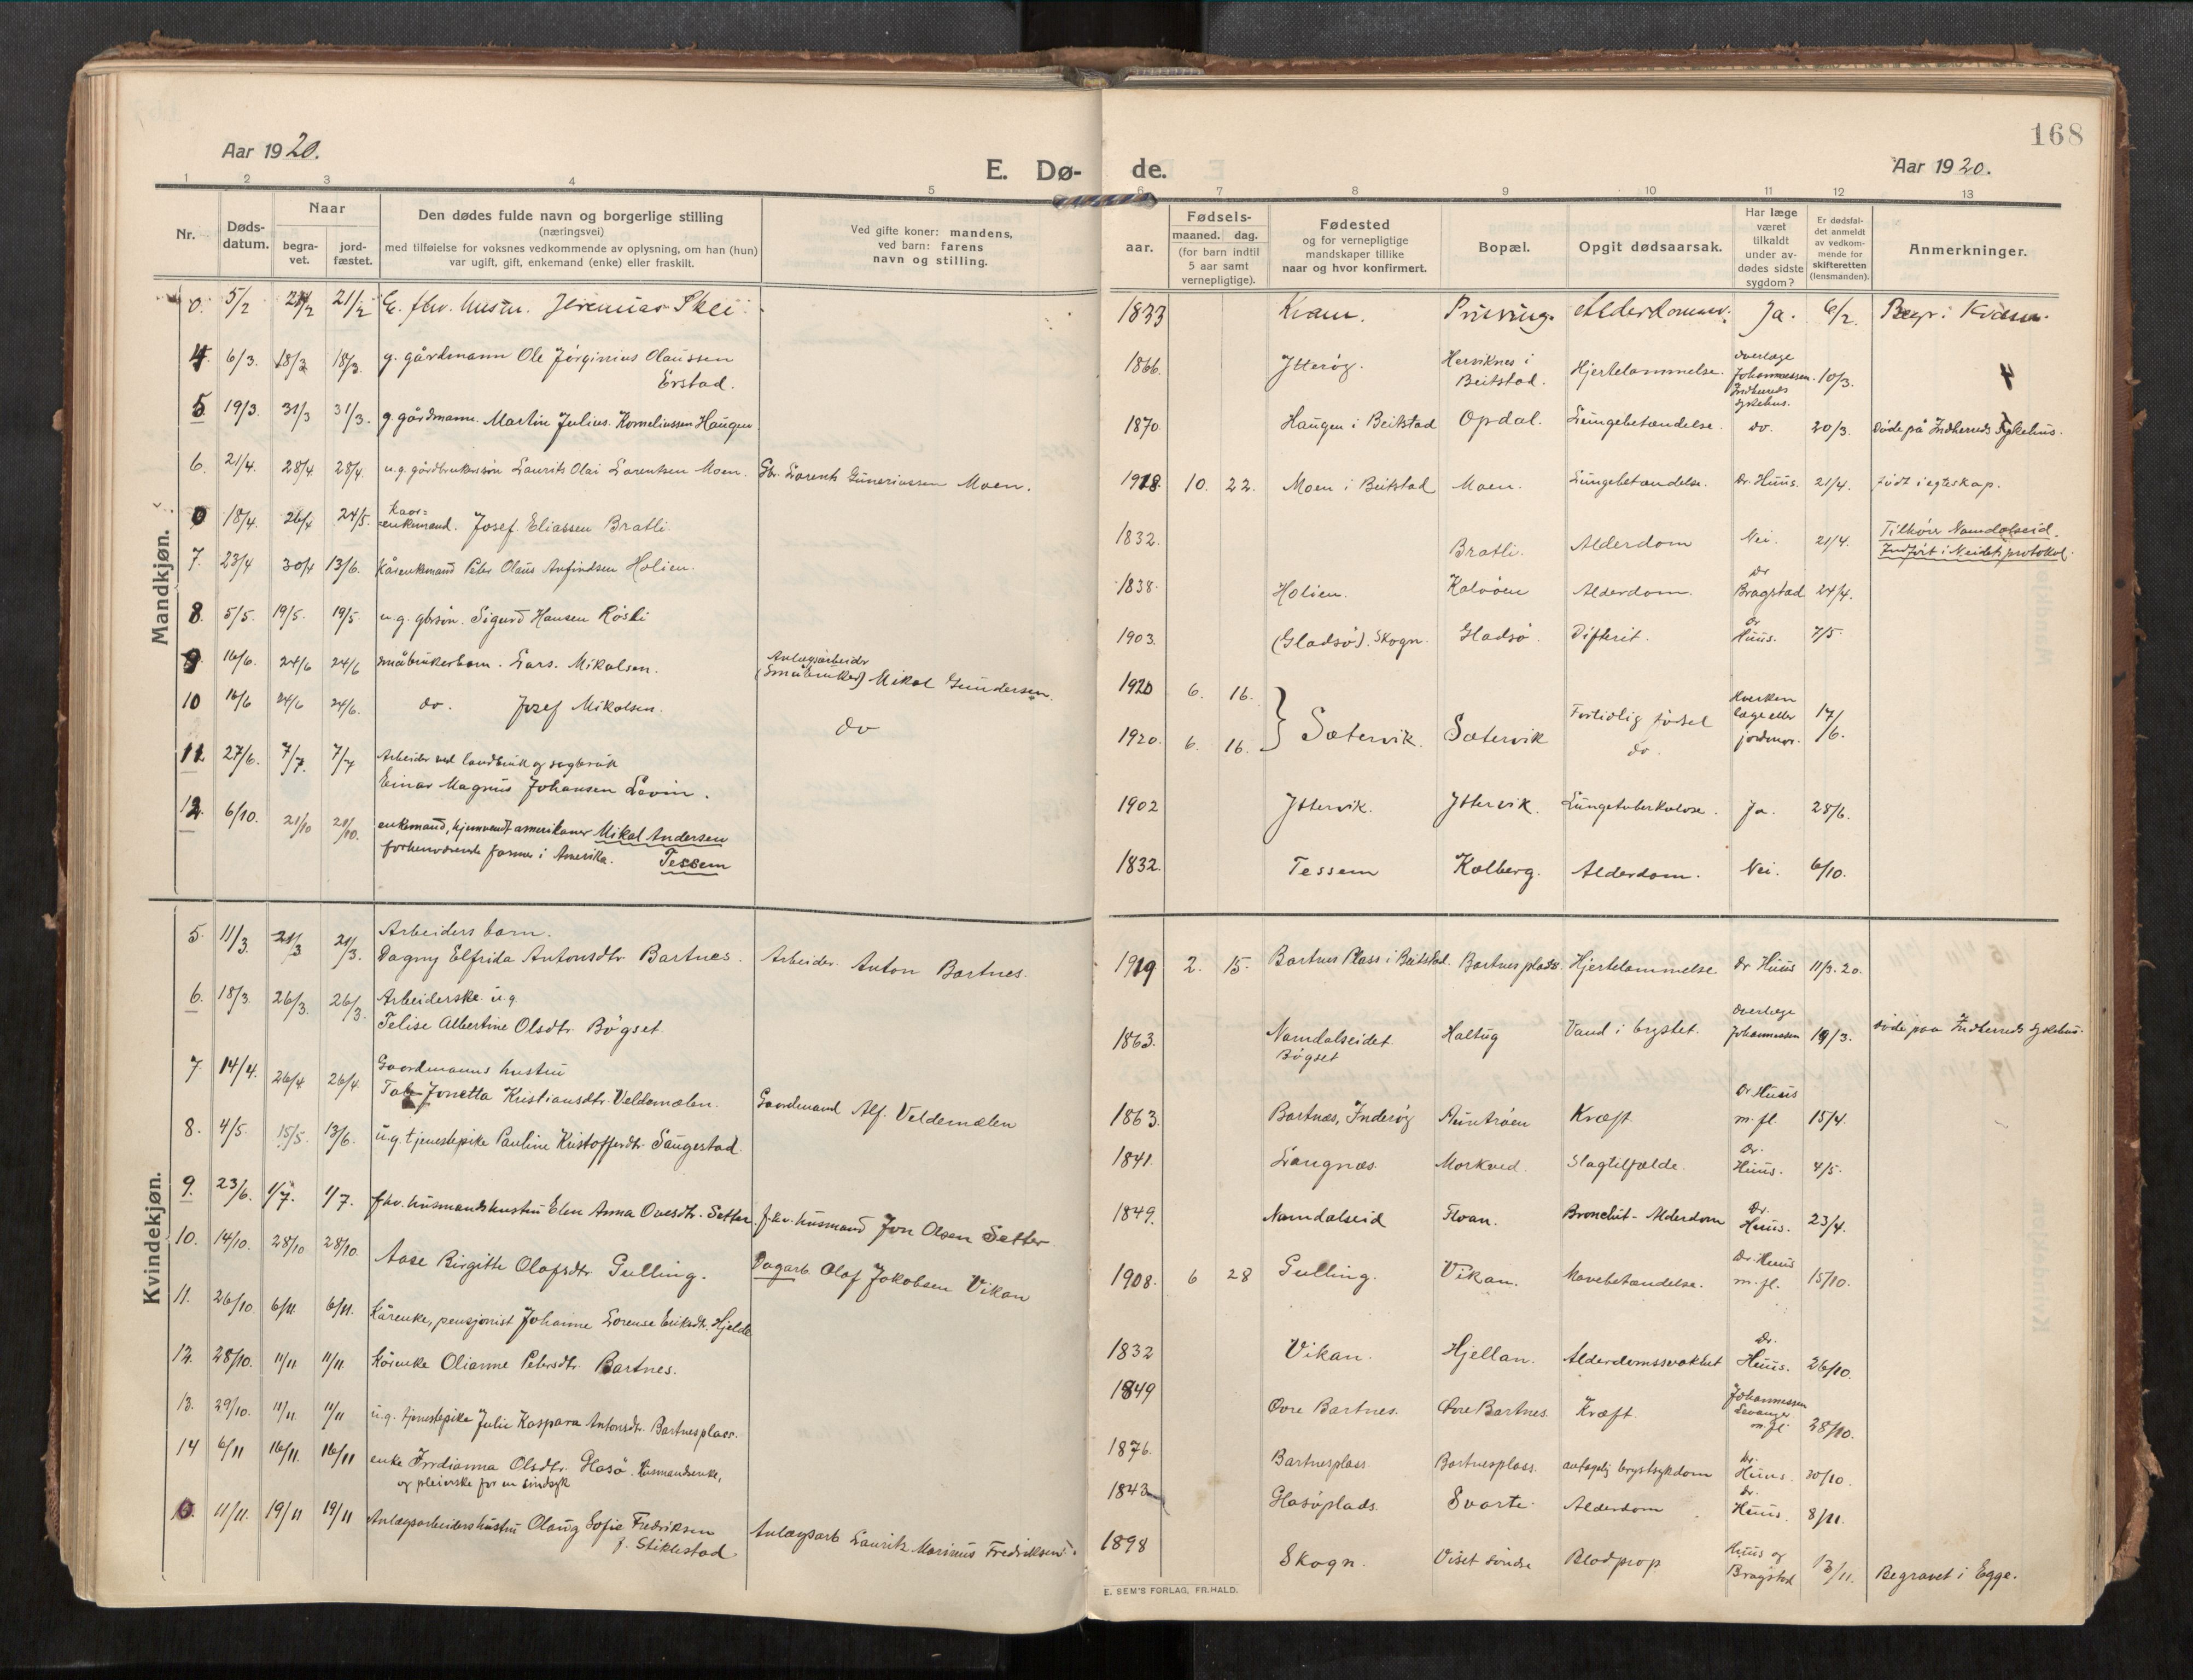 168
Aar 1920.
E. Dø- de.
Aar 1920.
1 2 3 4 5 6 7 8 9 10 11 12 13
Nr.
Døds-
datum.
Naar
begra-
vet.
jord-
fæstet.
Den dødes fulde navn og borgerlige stilling
(næringsvei)
med tilføielse for voksnes vedkommende av oplysning, om han (hun)
var ugift, gift, enkemand (enke) eller fraskilt.
Ved gifte koner: mandens,
ved barn: farens
navn og stilling.
aar.
Fødsels-
maaned. dag.
(for barn indtil
5 aar samt
vernepligtige).
Fødested
og for vernepligtige
mandskaper tillike
naar og hvor konfirmert.
Bopæl.
Opgit dødsaarsak.
Har læge
været
tilkaldt
under av-
dødes sidste
sygdom?
Er dødsfal-
det anmeldt
av vedkom-
mende for
skifteretten
(lensmanden).
Anmerkninger.
Mandkjøn.
0. 5/2 21/2 21/2 E. fhv. Husm. Jeremias Skei. 1833 Kvam. Alderdomssv. Ja. 6/2. Begr. i Kvam.
4. 6/3. 18/3 18/3. g. gårdmann Ole Jørginius Olaussen
Erstad. 1866. Ytterøy. Hersiknes i
Beitstad. Hjertelammelse. Overlæge
Johannessen.
Indherreds
sykehus. 10/3. 4
5 19/3. 31/3 31/3. g. gårdmann. Martin Julius Korneliussen Haugen. 1870. Haugen i Beitstad Opdal. Lungebetændelse. do. 20/3. Døde på Indherreds Sykehus.
6. 21/4. 28/4 28/4. u.g. gårdbrukersøn Laurits Olai Larentsen Moen. Gbr. Larents Guneriussen Moen. 1918. 10. 22. Moen i Beitstad Moen. Lungebetændelse. Dr. Huus. 21/4. født i egteskap.
0 18/4. 26/4 24/5. Kaar=
=enkemand. Josef Eliassen Bratli. 1832. Bratli. Alderdom Nei. 21/4. Tilhører Namdalseid.
Indført i N.eidets protokol.
7. 23/4 30/4 13/6. Kårenkemand Peter Olaus Anfindsen Holien. 1838. Holien. Kalvøen Alderdom. Dr
Bragstad 24/4.
8. 5/5. 19/5. 19/5. u.g. gbrsøn. Sigurd Hansen Røski 1903. (Gladsø). Skogn. Gladsø. Difterit. Dr
Huus. 7/5.
9. 16/6. 24/6 24/6 småbrukerbarn. Lars. Mikalsen. Anlægsarbeider
(Småbruker) Mikal Gundersen. 1920 6. 16.
10 16/6 24/6 24/6. do. Josef Mikalsen. do 1920. 6. 16. Sætervik. Sætervik Fortidlig fødsel
do. Hverken
læge eller
jordmor. 17/6.
11 27/6. 7/7. 7/7 Arbeider ved landbruk og sagbruk
Einar Magnus Johansen Lovin. 1902 Yttervik. Yttervik. Lungetuberkulose. Ja. 28/6.
12. 6/10. 21/10 21/10. enkemand, hjemvendt amerikaner Mikal Andersen
forhenværende farmer i Amerika. Tessem 1832. Tessem Kolberg. Alderdom. Nei. 6/10.
Kvindekjøn.
5. 11/3. 21/3 21/3. Arbeiders barn.
Dagny Elfrida Antonsdtr. Bartnes. Arbeider. Anton Bartnes. 1919 2. 15. Bartnes Plass i Beitstad. Bartnesplads. Hjertelammelse Dr Huus 11/3. 20.
6. 18/3. 26/3. 26/3. Arbeiderske u.g.
Telise Albertine Olsdtr. Bøgset. 1863. Namdalseidet.
Bøgset Haltug Vand i brystet. Overlæge
Johannessen 19/3. døde paa Indherreds sykehus.
7. 14/4. 26/4 26/4. Gaardmanns hustru
Jonetta Kristiansdtr. Veldemælen. Gaardmand Alf. Veldemælen 1863. Bartnæs, Inderøy Kræft. Dr Huus
m. fl. 15/4.
8. 4/5. 15/5. 13/6. u.g. tjenestepike Pauline Kristoffersdtr. Saugestad. 1841. Langnæs. Morkved. Slagtilfælde. Dr.
Huus. 4/5.
9. 23/6. 1/7. 1/7. fhv. husmandshustru Elen Anna Ovesdtr. Setter. fhv. husmand Jon Olsen Setter 1849. Namdalseid Floan. Bronchit - Alderdom Dr.
Huus. 23/4.
10. 14/10. 28/10 28/10. Aase Birgitte Olafsdtr. Gulling. Dagarb. Olaf Jakobsen Vikan 1908. 6 28 Gulling. Vikan. Mavebetændelse. Dr. Huus
m. fl. 15/10.
11. 26/10. 6/11. 6/11. Kårenke, pensjonist Johanne Lorense Eriksdtr. Hjelde 1832 Vikan. Hjellan. Alderdomssvakhet Dr.
Huus. 26/10.
12. 28/10. 11/11 11/11. Kårenke Olianne Petersdtr. Bartnes. 1849 Øvre Bartnes. Øvre Bartnes. Kræft. Johannessen
Levanger
m. fl 28/10.
13. 29/10. 11/11. 11/11 u.g. tjenestepike Julie Kaspara Antonsdtr. Bartnesplass. 1876. Bartnesplass. Bartnesplass. brystsykdom Dr.
Huus. 30/10.
14 6/11 16/11. 16/11 enke Olsdtr. Glasø. husmandsenke,
og pleierske for en sindsyk 1843 Glasøplads. Svarte. Alderdom Dr.
Huus. 8/11.
0. 11/11. 19/11 19/11 Anlægsarbeidershustru Olaug Sofie Fredriksen
f. Stiklestad Anlægsarb Laurits Marinus Fredriksen. 1898 Skogn. søndre Blodprop Huus og
Bragstad 13/11. Begravet i Egge.
E. SEM'S FORLAG, FR.HALD.